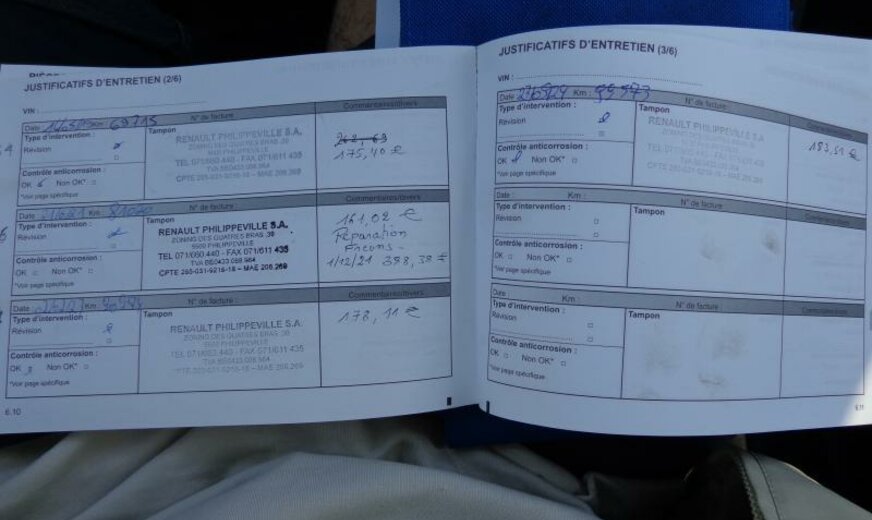 JUSTIFICATIFS D'ENTRETIEN (2/6)
VIN :
Date Km : 69715 N° de facture : Commentaires/divers
Type d'intervention :
Révision
Contrôle anticorrosion :
OK Non OK*
*Voir page spécifique
Tampon
RENAULT PHILIPPEVILLE S.A.
ZONING DES QUATRES BRAS 39
5600 PHILIPPEVILLE
TEL 071/660 440 - FAX 071/611 435
TVA BE0433.088.964
CPTE 265-031-9218-18 - MAE 208.269
175,40 €
Date : Km : N° de facture : Commentaires/divers
Type d'intervention :
Révision
Contrôle anticorrosion :
OK Non OK*
*Voir page spécifique
Tampon
RENAULT PHILIPPEVILLE S.A.
ZONING DES QUATRES BRAS 39
5600 PHILIPPEVILLE
TEL 071/660 440 - FAX 071/611 435
TVA BE0433.088.964
CPTE 265-031-9218-18 - MAE 208.269
161,02 €
Réparation
Freins -
1/12/21 398,38 €
Date : Km : N° de facture : Commentaires/divers
Type d'intervention :
Révision
Contrôle anticorrosion :
OK Non OK*
*Voir page spécifique
Tampon
RENAULT PHILIPPEVILLE S.A.
ZONING DES QUATRES BRAS 39
5600 PHILIPPEVILLE
TEL 071/660 440 - FAX 071/611 435
TVA BE0433.088.964
CPTE 265-031-9218-18 - MAE 208.269
178,11 €
6.10
JUSTIFICATIFS D'ENTRETIEN (3/6)
VIN :
Date Km : 99973 N° de facture : Commentaires/divers
Type d'intervention :
Révision
Contrôle anticorrosion :
OK Non OK*
*Voir page spécifique
Tampon
RENAULT PHILIPPEVILLE S.A.
TEL 071/660 440 - FAX 071/611 435
183,51 €
Date : Km : N° de facture : Commentaires/divers
Type d'intervention :
Révision
Contrôle anticorrosion :
OK Non OK*
*Voir page spécifique
Tampon
Date : Km : N° de facture : Commentaires/divers
Type d'intervention :
Révision
Contrôle anticorrosion :
OK Non OK*
*Voir page spécifique
Tampon
6.11